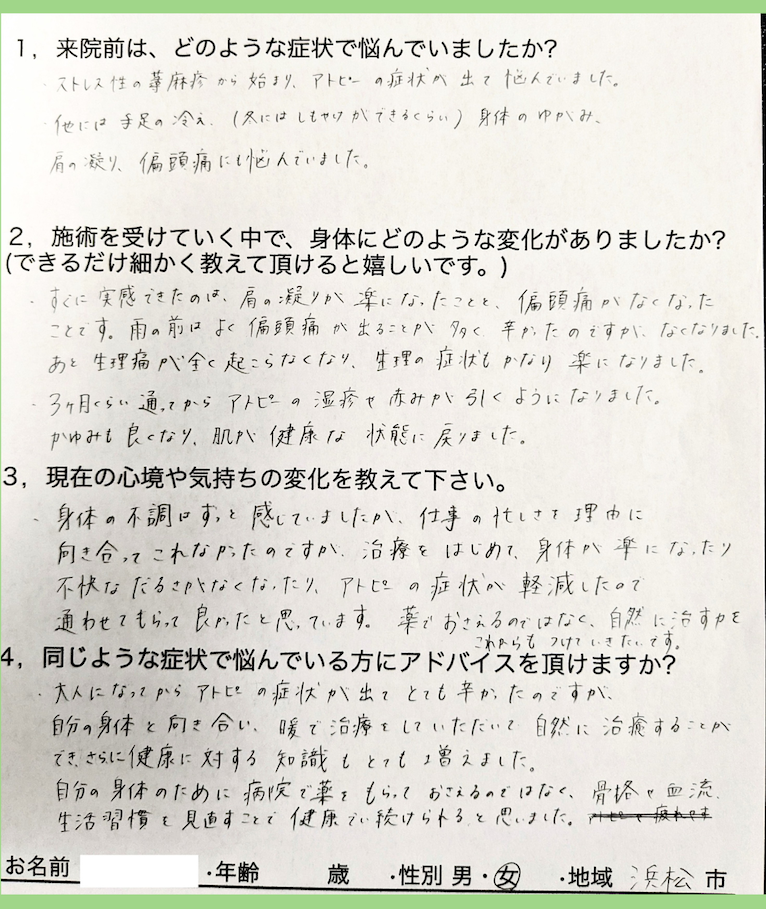 1，来院前は、どのような症状で悩んでいましたか?
・ストレス性の蕁麻疹から始まり、アトピーの症状が出て悩んでいました。
・他には手足の冷え、(冬にはしもやけができるくらい)身体のゆがみ、
肩の凝り、偏頭痛にも悩んでいました。
2，施術を受けていく中で、身体にどのような変化がありましたか?
(できるだけ細かく教えて頂けると嬉しいです。)
・すぐに実感できたのは、肩の凝りが楽になったことと、偏頭痛がなくなった
ことです。雨の前はよく偏頭痛が出ることが多く、辛かったのですが、なくなりました。
あと生理痛が全く起こらなくなり、生理の症状もかなり楽になりました。
・3ヶ月くらい通ってからアトピーの湿疹や赤みが引くようになりました。
かゆみも良くなり、肌が健康な状態に戻りました。
3，現在の心境や気持ちの変化を教えて下さい。
・身体の不調はずっと感じていましたが、仕事の忙しさを理由に
向き合ってこれなかったのですが、治療をはじめて、身体が楽になったり
不快なだるさがなくなったり、アトピーの症状が軽減したので
通わせてもらって良かったと思っています。薬でおさえるのではなく、自然に治す力を
これからもつけていきたいです。
4，同じような症状で悩んでいる方にアドバイスを頂けますか?
・大人になってからアトピーの症状が出てとても辛かったのですが、
自分の身体と向き合い、暖で治療をしていただいて自然に治癒することが
でき、さらに健康に対する知識もとても増えました。
自分の身体のために病院で薬をもらっておさえるのではなく、骨格や血流、
生活習慣を見直すことで健康でい続けられると思いました。
お名前 ・年齢 歳 ・性別 男・女 ・地域 浜松 市